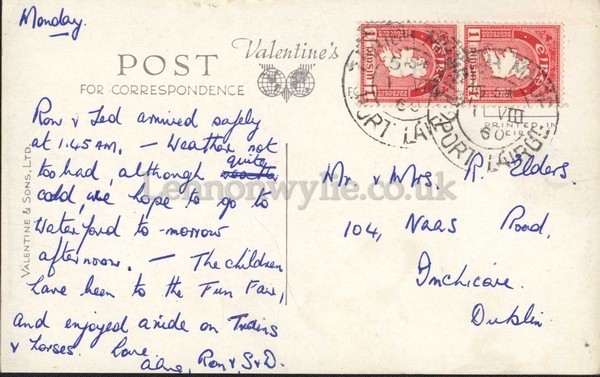 Monday.
POST
FOR CORRESPONDENCE
Valentine's
VALENTINE & SONS, LTD.
Ron & Ted arrived safely
at 1.45 am. – Weather not
too bad, although quite
cold, we hope to go to
Waterford to-morrow
afternoon. – The children
have been to the Fun Fair,
and enjoyed a ride on Trains
& Horses. Love
Ron & S&D.
PRINTED IN
EIRE
PORT LAIRGE
VIII
60
PORT LAIRGE
Mr. & Mrs. R. Elders.
104, Naas Road,
Inchicore.
Dublin.
Lennonwylie.co.uk